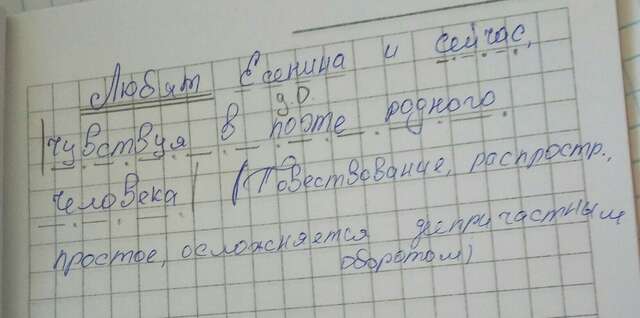 Любят Есенина и сейчас,
д.О.
|чувствуя в поэте родного
человека| (Повествование, распростр.,
простое, осложняется деепричастным
оборотом)